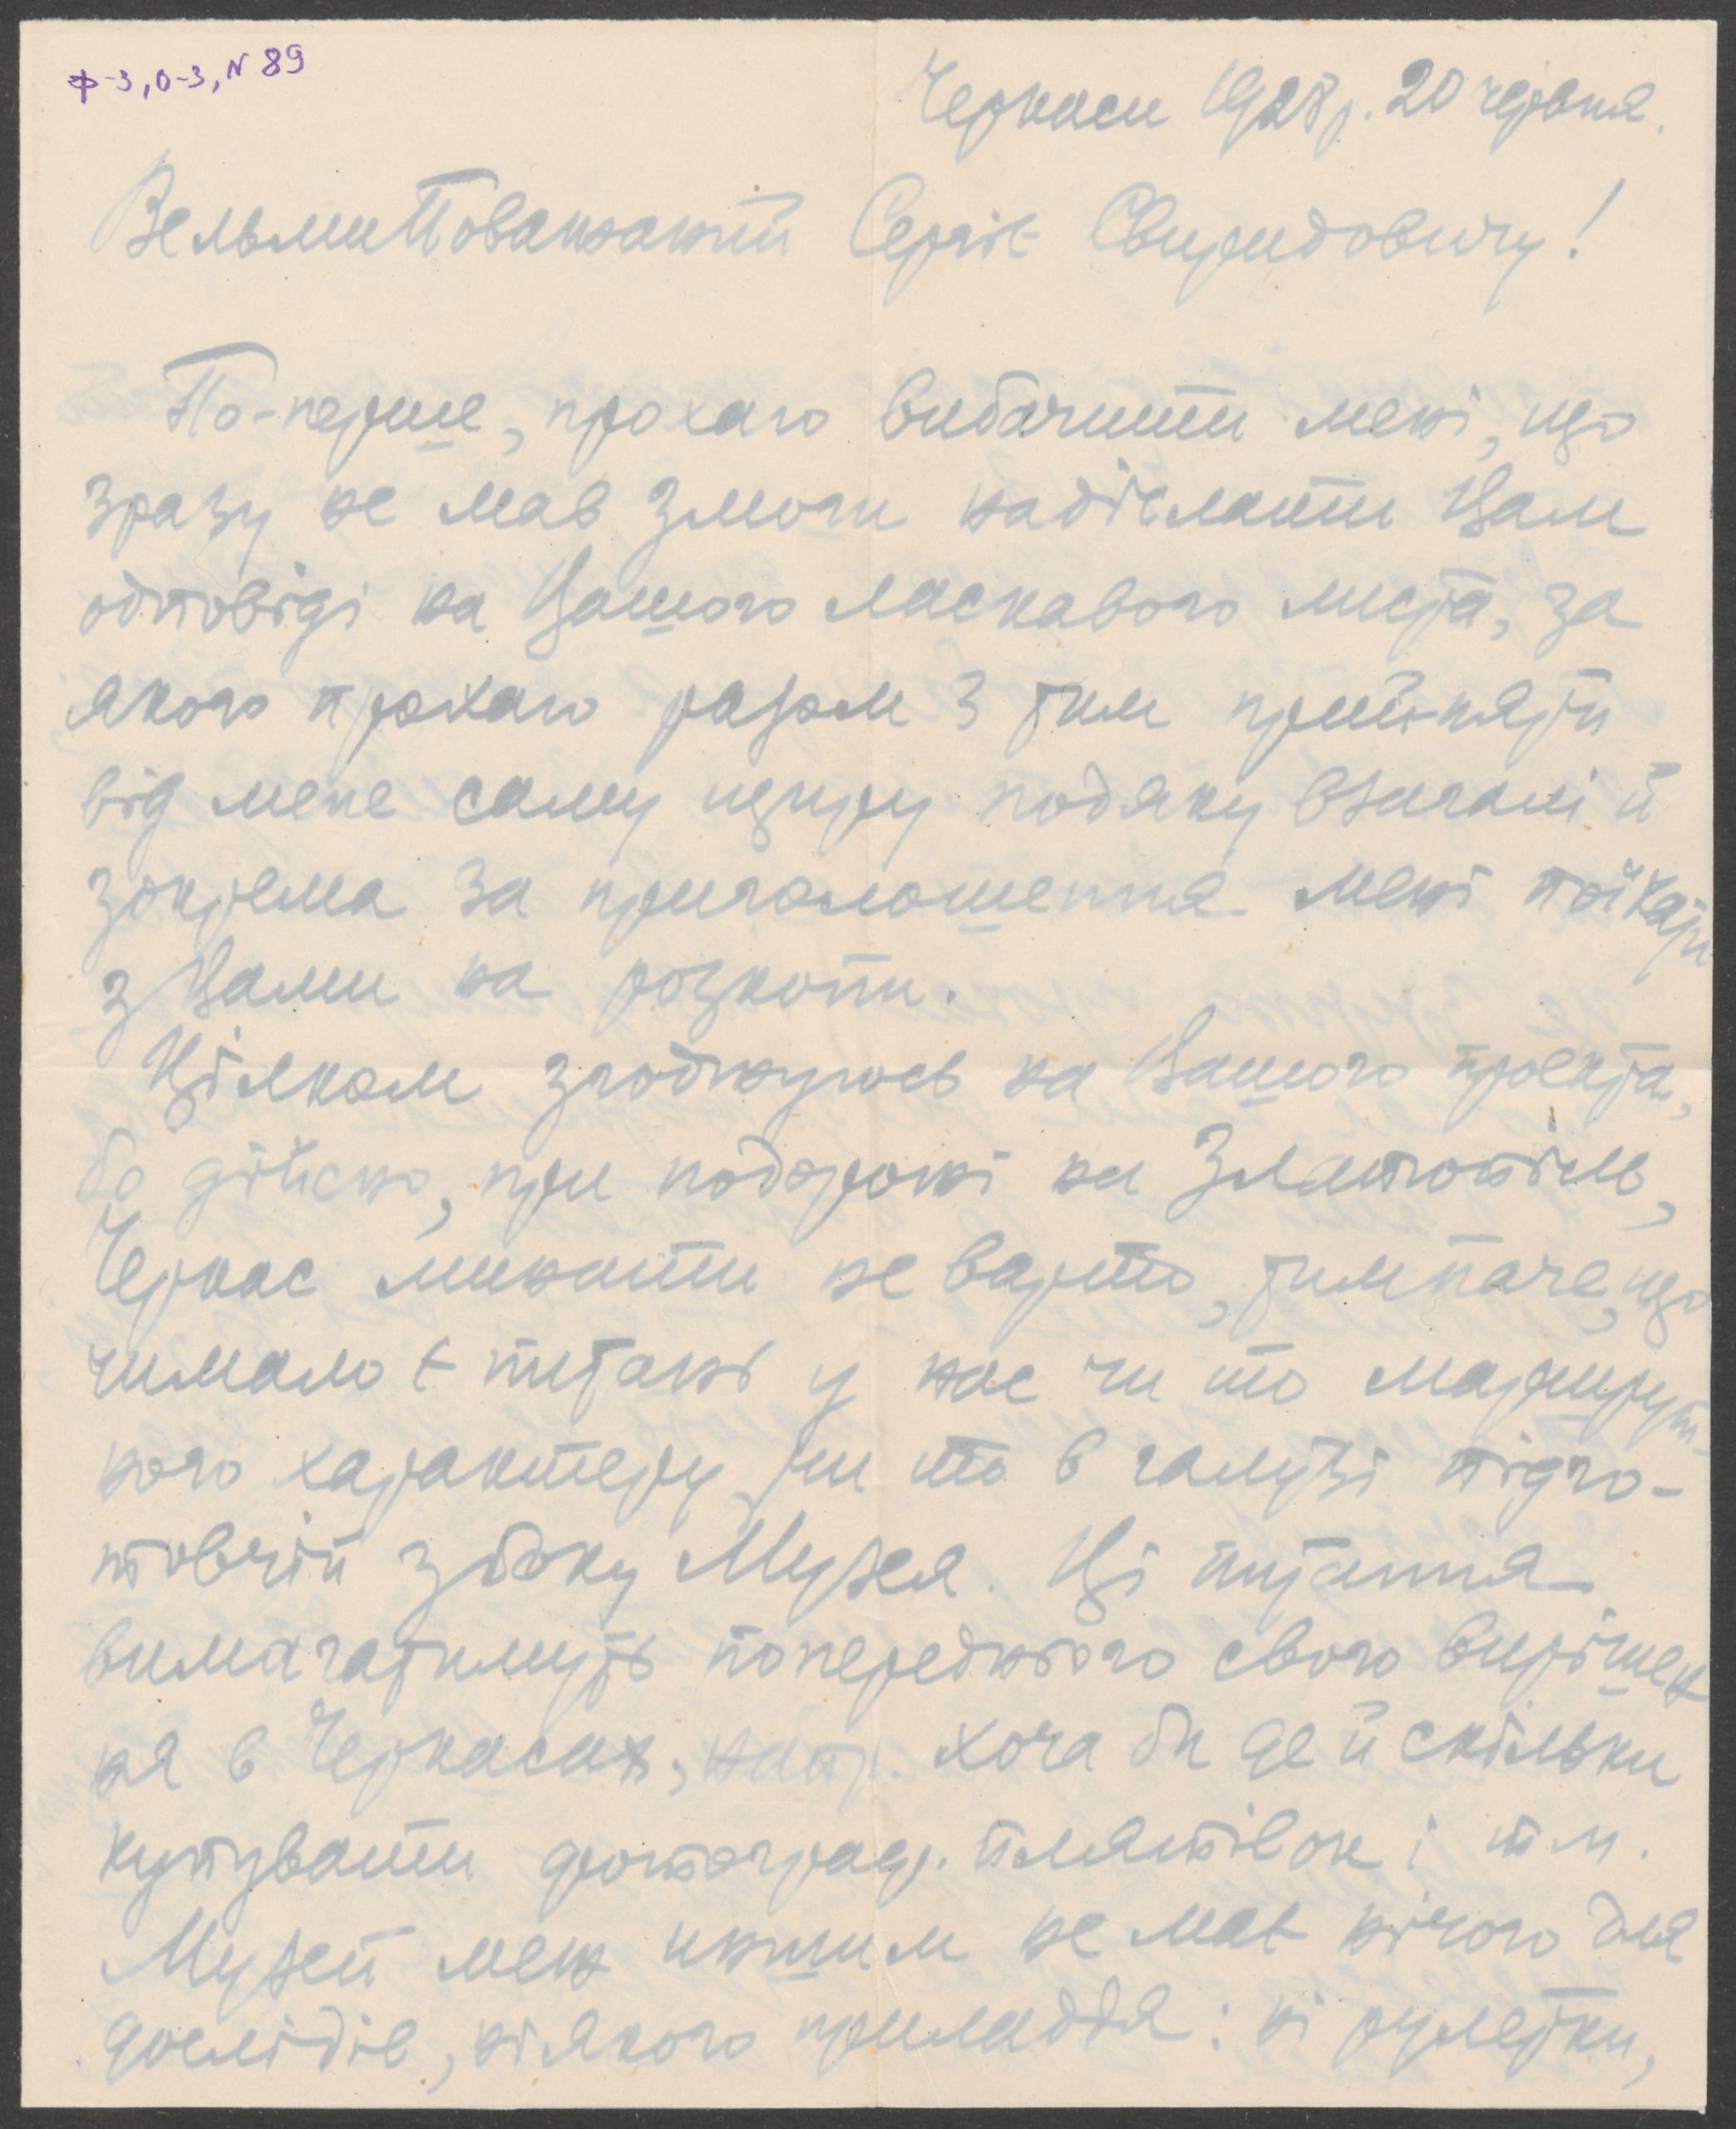 Ф-3, О-3, N 89
Черкаси 1928 р. 20 червня.
ВельмиПоважаний Сергіє Свиридовичу!
По-перше, прохаю вибачити мені, що
зразу не мав змоги надіслати Вам
одповіді на Вашого ласкавого листа, за
якого прохаю разом з тим прийняти
від мене саму щиру подяку взагалі й
зокрема за приголошення мені поїхати
з Вами на розкопи.
Цілком згоджуюсь на Вашого проекта,
бо дійсно, при подорожі на Златопіль,
Черкас минати не варто, тим паче, що
чимало є питань у нас чи то маршрут-
ного характеру чи то в галузі підго-
товчій з боку Музея. Ці питання
вимагатимуть попереднього свого вирішен
ня в Черкасах, напр. хоча би де й скільки
купувати фотограф. плятівок і т. п.
Музей між иншим не має нічого для
дослідів, ніякого приладдя: ні рулетки,